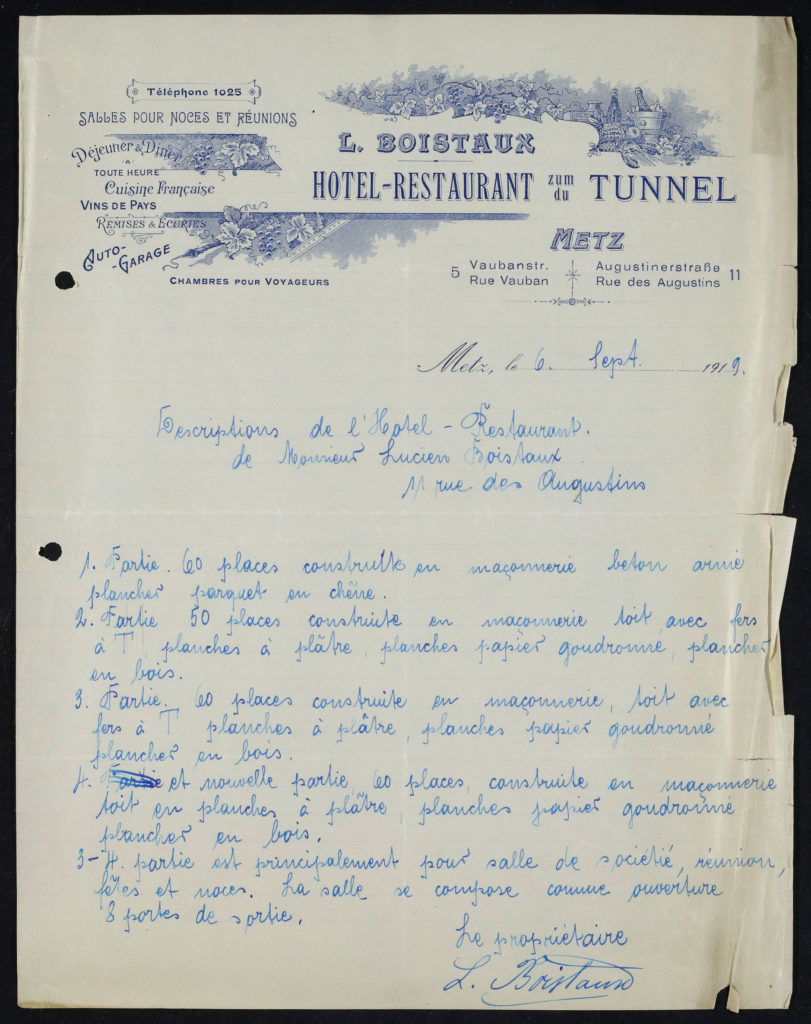 Téléphone 1025
SALLES POUR NOCES ET RÉUNIONS
Déjeuner & Diner
A
TOUTE HEURE
Cuisine Française
VINS DE PAYS
REMISES & ECURIES
AUTO-
-GARAGE
CHAMBRES POUR VOYAGEURS
L. BOISTAUX
HOTEL-RESTAURANT zum du TUNNEL
METZ
5 Vaubanstr. Rue Vauban
Augustinerstraße Rue des Augustins 11
Metz, le 6. Sept. 1919.
Descriptions de l'Hotel - Restaurant.
de Monsieur Lucien Boistaux
11 rue des Augustins
1. Partie. 60 places construite en maçonnerie beton armé
plancher parquet en chêne.
2. Partie 50 places construite en maçonnerie toit avec fers
à T planches à plâtre, planches papier goudronné, plancher
en bois.
3. Partie. 60 places construite en maçonnerie, toit avec
fers à T planches à plâtre, planches papier goudronné
plancher en bois.
4. Partie et nouvelle partie, 60 places, construite en maçonnerie
toit en planches à plâtre, planches papier goudronné
plancher en bois.
3-4. partie est principalement pour salle de sociétié, réunion,
fêtes et noces. La salle se compose comme ouverture
8 portes de sortie.
Le propriétaire
L. Boistaux